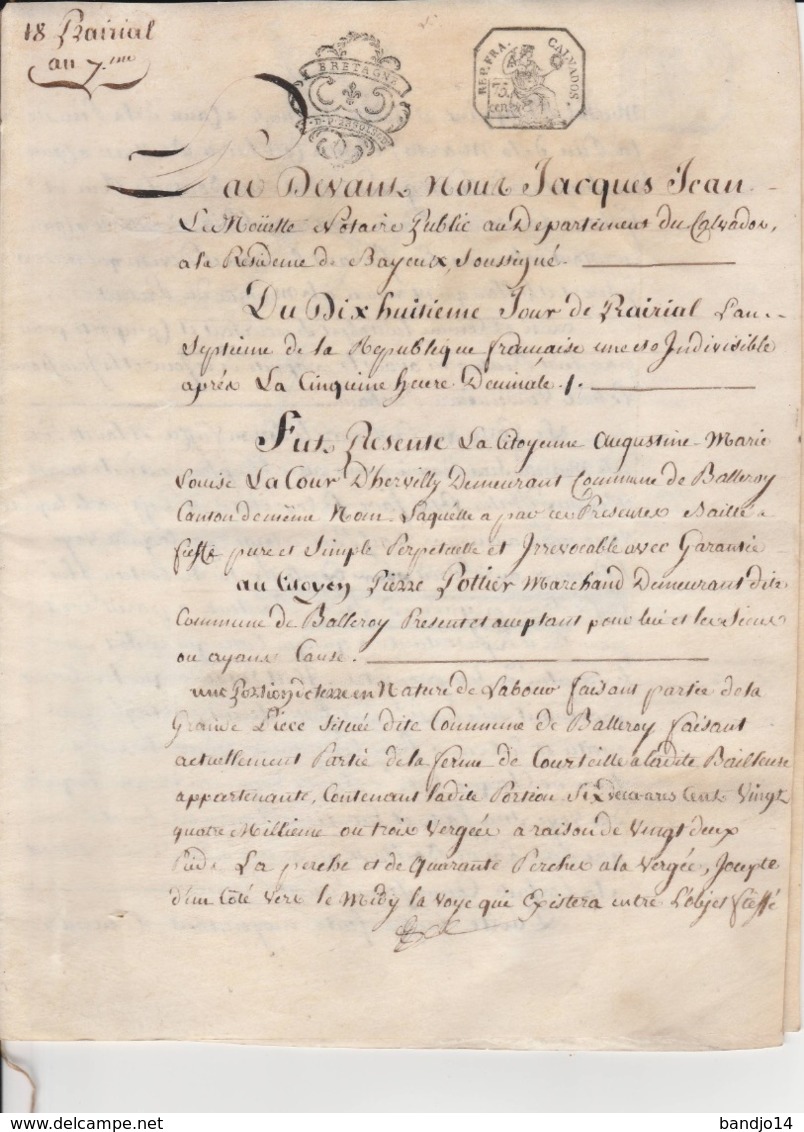 18 Prairial
au 7.me
BRETAGNE
REP. FRA.
CALVADOS.
75
cent.
Par Devant Nous Jacques Jean
Le Moüette Notaire Public au Departement du Calvados,
a la Residence de Bayeux, Soussigné.
Du Dix huitieme Jour de Prairial L'an
Septieme de la Republique francaise une et Indivisible
après La Cinquieme heure Decimale ./.
Fut Presente La Citoyenne Augustine Marie
Louise La Cour D'hervilly Demeurant Commune de Balleroy
Canton de même Nom. Laquelle a par ces Presentes Baillé a
fieffe pure et Simple Perpetuelle et Irrevocable avec Garantie
au Citoyen Pierre Pottier Marchand Demeurant dite
Commune de Balleroy Present et acceptant pour lui et les Siens
ou ayans Cause.
une Portion de terre en Nature de Labour faisant partie de la
Grande Piece Située dite Commune de Balleroy faisant
actuellement Partie de la ferme de Courteille a ladite Bailleuse
appartenante, Contenant ladite Portion Six decares Cent Vingt
quatre Millieme ou trois Vergée a raison de Vingt deux
Pieds La perche et de Quarante Perches a la Vergée, Joupte
d'un Côté Vers le Midy la voye qui Existera entre L'objet fieffé
bandjo14